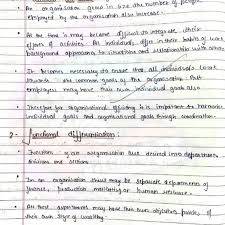 • An organisation grows in size the number of people
employed by the organisation also increase.
• At the time it may become difficult to integrate their
efforts of activities. All individuals differ in their habits of work
background approaches to situations and relationship with others.
• It becomes necessary to ensure that all individuals work
towards the common goals of the organisation. But
employees may have their own individual goals also
• Therefore for organisational efficiency it is important to harmonise
individual goals and organisational goals through coordination.
2- Functional differentiation:
• Functions of an organisation are divided into departments,
divisions and sections.
• In an organisation there may be separate departments of
finance, production marketing or human resource.
• All these departments may have their own objectives, policies, &
their own style of working.